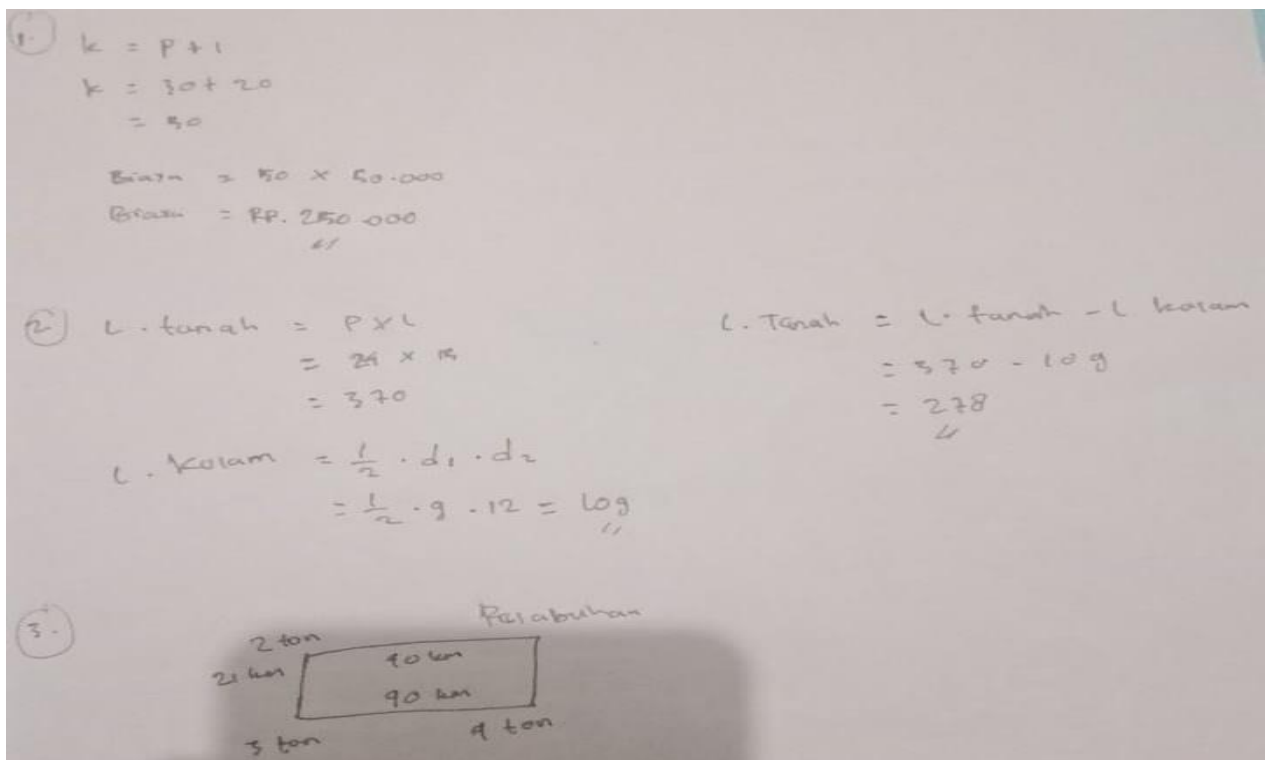 1. k = P + l
k = 30 + 20
= 50
Biaya = 50 x 50.000
Biaya = RP. 250.000
2 L. tanah = P x L
= 24 x 15
= 370
L. Kolam = 1/2 . d1 . d2
= 1/2 . 9 . 12 = 109
L. Tanah = L. tanah - L. kolam
= 370 - 109
= 278
3. Pelabuhan
2 ton
21 km 90 km
90 km
3 ton 9 ton